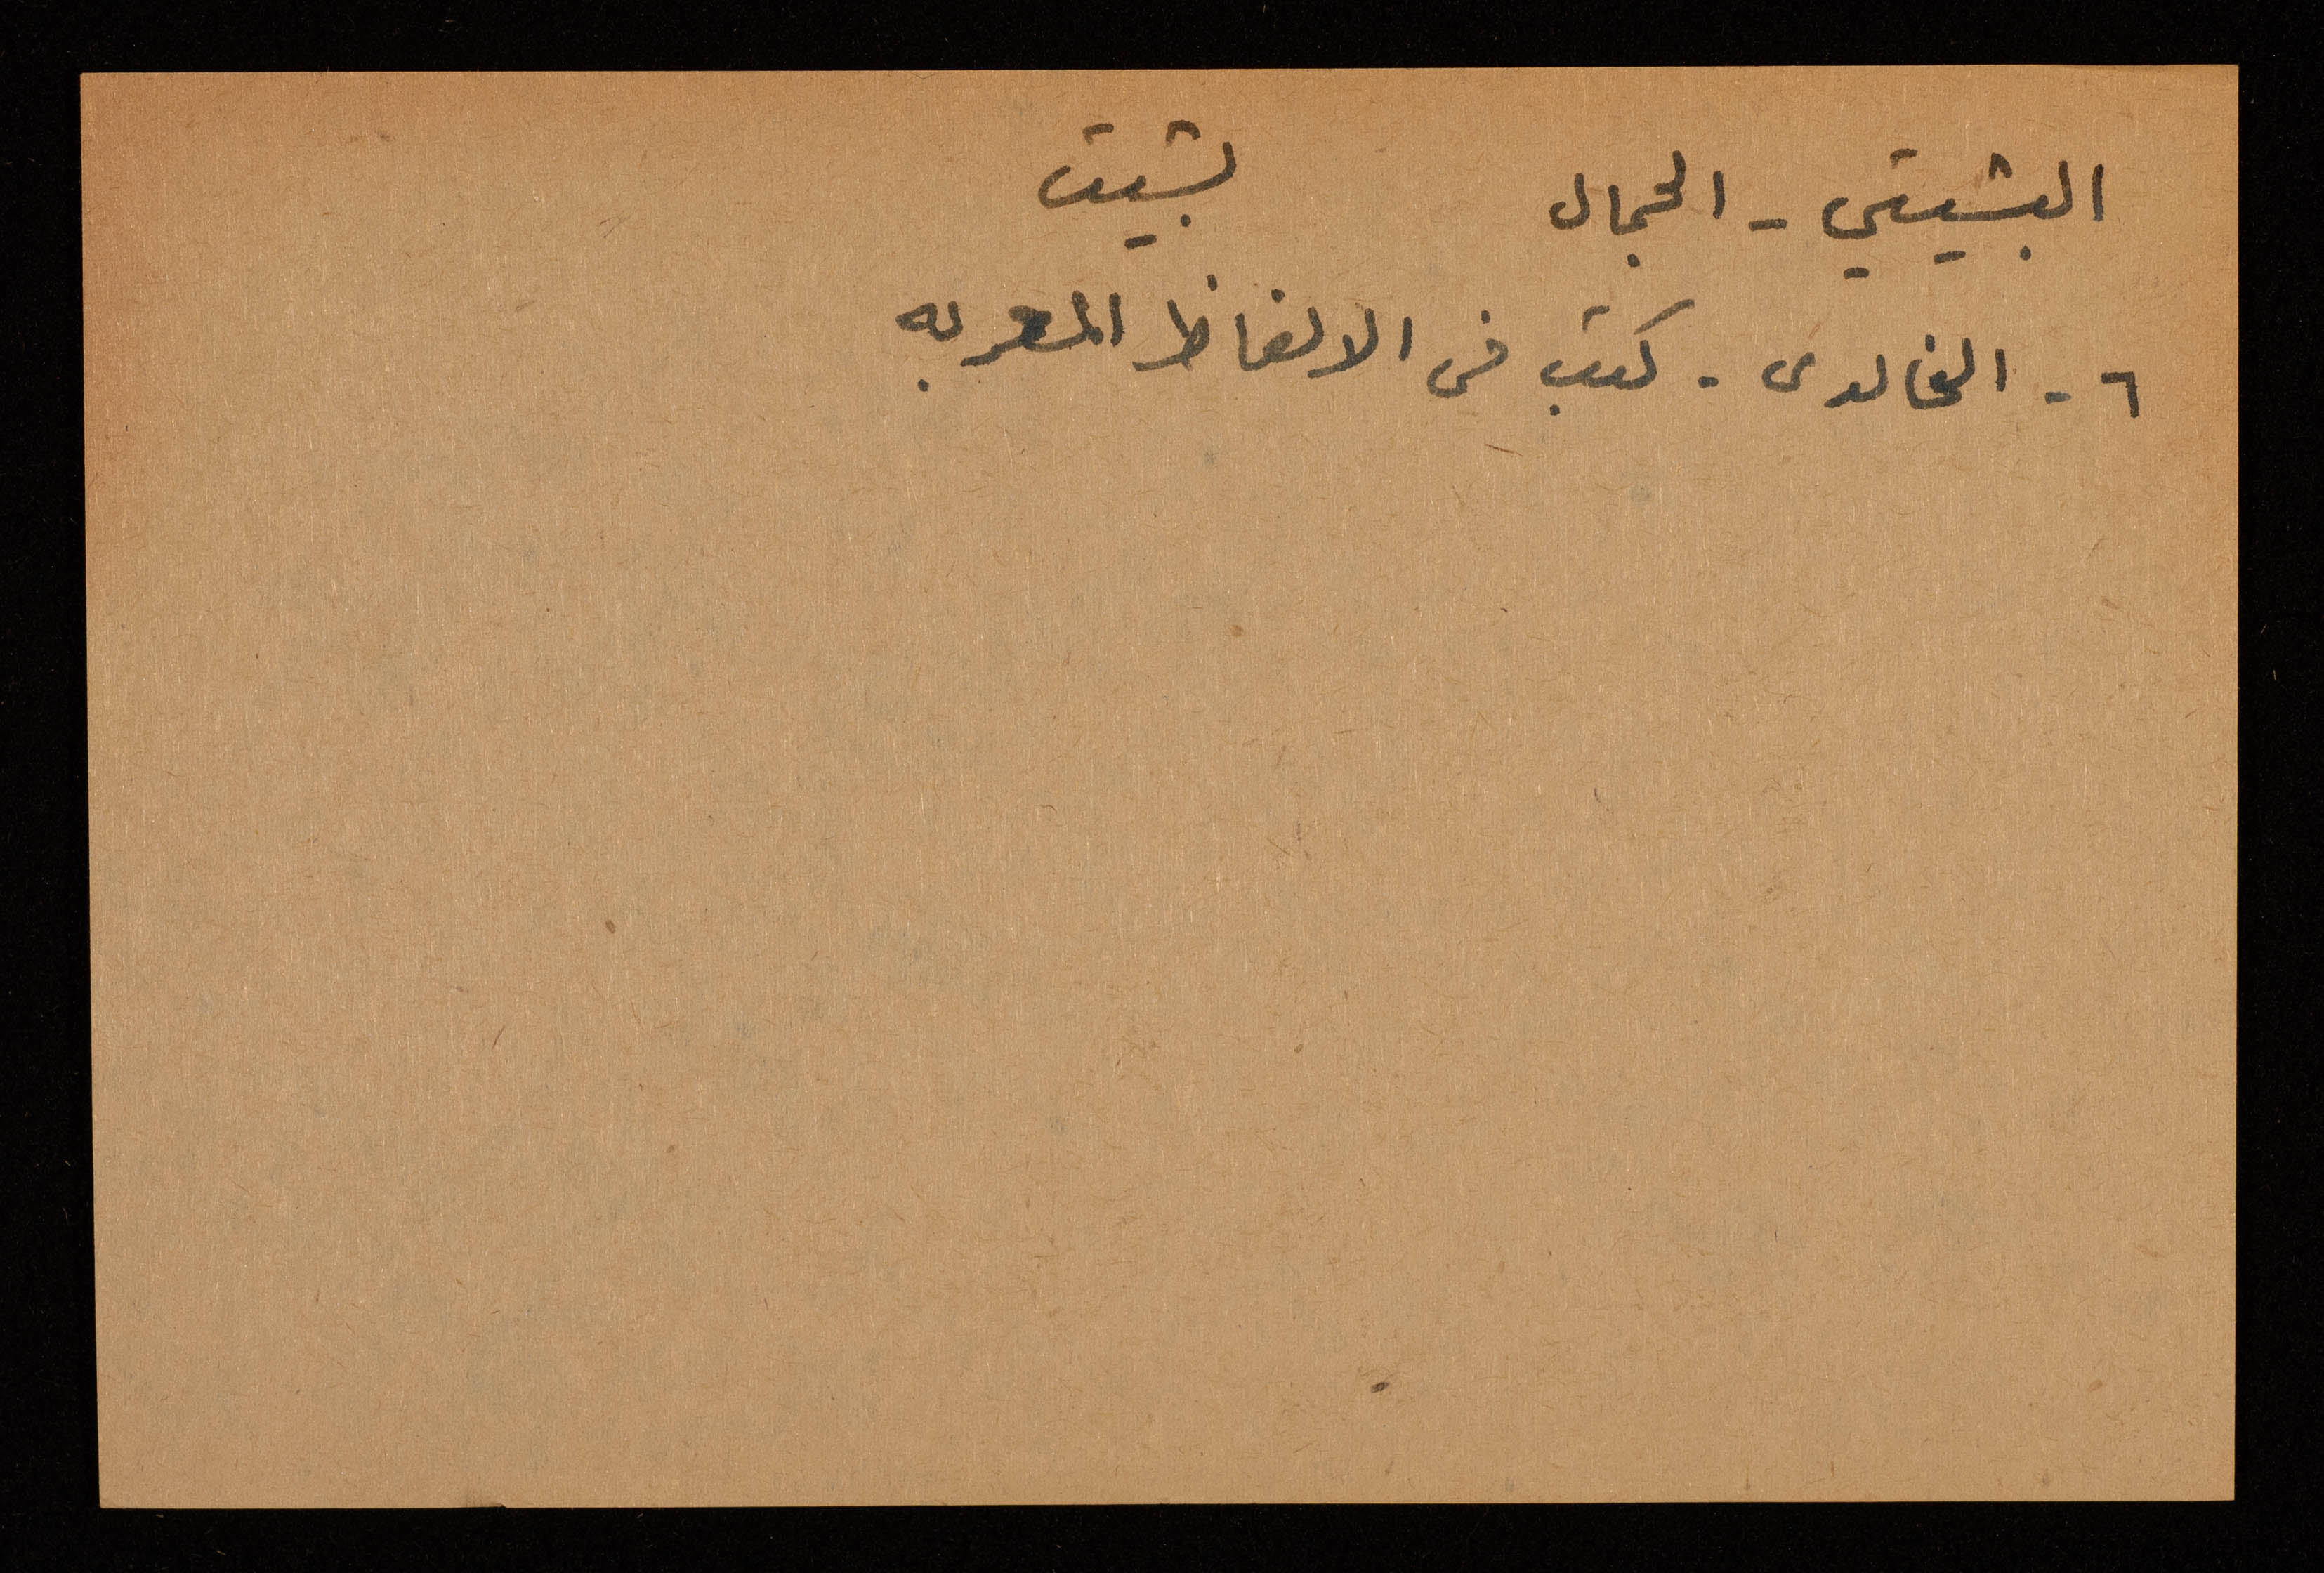 البشيتي - الجمال بشيت
٦ - الخالدى - كتب فى الالفاظ المعربه